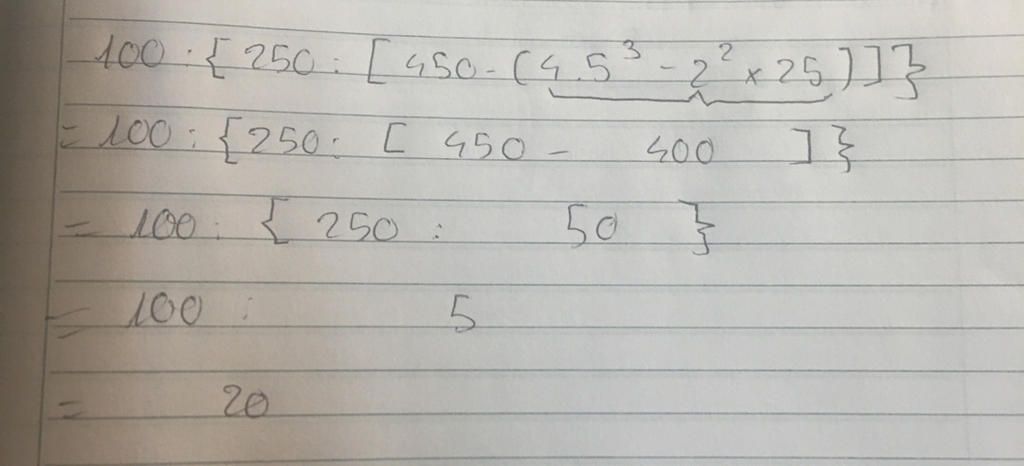 100 : { 250 : [ 450 - ( 4.5³ - 2² × 25 ) ] }
= 100 : { 250 : [ 450 - 400 ] }
= 100 : { 250 : 50 }
= 100 : 5
= 20